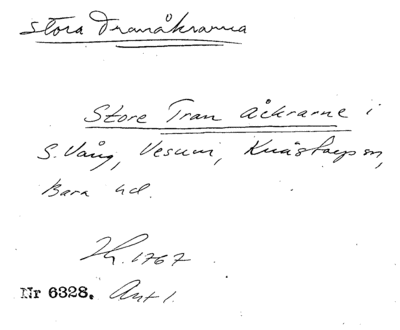 Stora Tranåkrarna
Store Tran åckrarne i
S. Vång, Vesum, Knästorp sn,
Bara hd.
1767
Nr 6328. Akt 1.